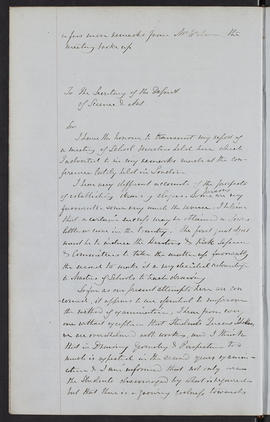 a few more remarks from Mr. the
meeting broke up.
To The Secretary of the Departt
of Science & Art
Sir
I have the honour to transmit my report of
a meeting of School Masters held here which
I alluded to in my remarks made at the con-
ference lately held in London.
I have very different accounts of the prospects
of establishing classes; some are very
sanguine some very much the reverse. I believe
that a certain success may be obtained in
but the first just
must be to induce the Directors &
& Committees to take the matter up formally
the second to make it a very decided advantage
to Masters of Schools to teach drawing.
So far as our present attempts here are con-
cerned, it appears to me essential to improve
the method of examination. I hear from every
one without exception that Students
are constrained well working and I think
that in Drawing Geometry & Perspective too
much is expected in the second years examin-
ation & I am informed that not only were
the Students discouraged by what is required
but that there is a growing coolness towards